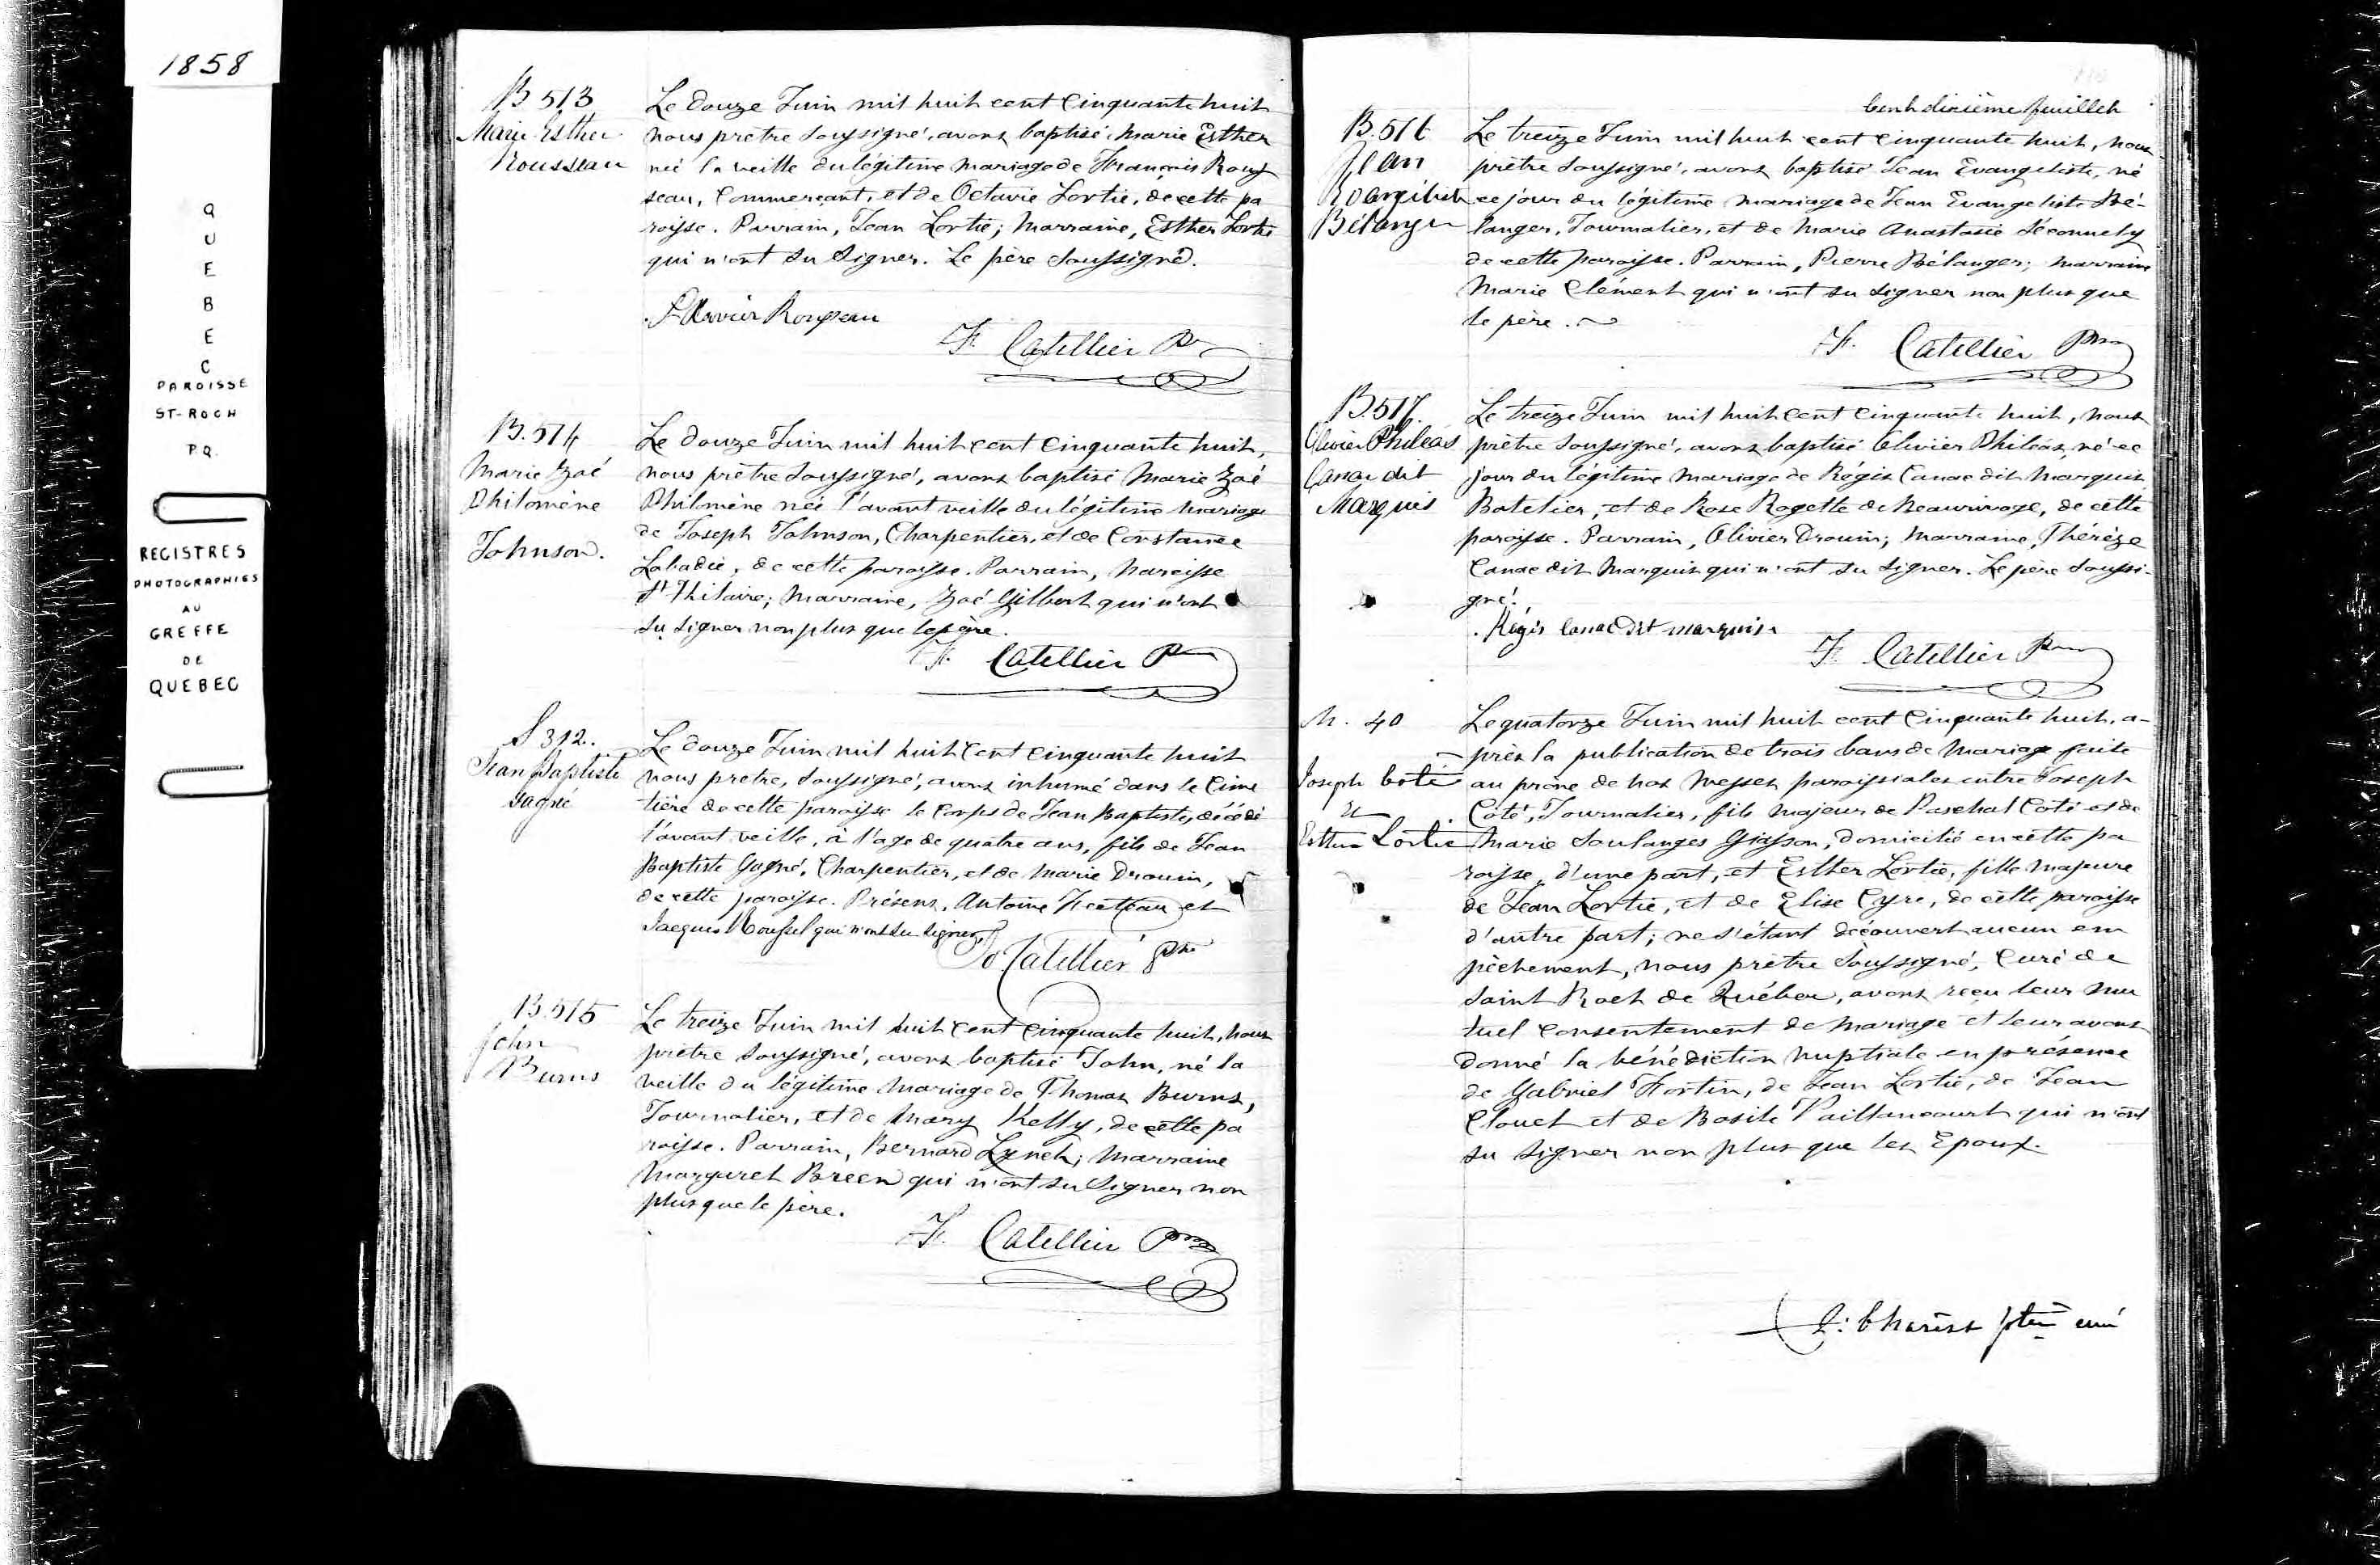 1858
QUEBEC
PAROISSE
ST-ROCH
P.Q.
REGISTRES
PHOTOGRAPHIES
AU
GREFFE
DE
QUEBEC
B 513
Marie Esther
Rousseau
Le douze Juin mil huit cent cinquante huit
nous prêtre soussigné, avons baptisé Marie Esther
née la veille du légitime mariage de François Rous
seau, Commerçant, et de Octavie Lortie, de cette pa
roisse. Parrain, Jean Lortie; Marraine, Esther Lortie
qui n'ont su signer. Le père soussigné.
Rousseau
F. Catellier Ptre
B. 514
Marie Zoé
Philomène
Johnson.
Le douze Juin mil huit cent cinquante huit,
nous prêtre soussigné, avons baptisé Marie Zoé
Philomène née l'avant veille du légitime mariage
de Joseph Johnson, Charpentier, et de Constance
Labadie, de cette paroisse. Parrain, Narcisse
St Hilaire; Marraine, Zoé Gilbert qui n'ont
su signer non plus que le père.
F. Catellier Ptre
S 312.
Jean Baptiste
Gagné
Le douze Juin mil huit cent cinquante huit
nous prêtre, soussigné, avons inhumé dans le Cime
tière de cette paroisse le corps de Jean Baptiste, décédé
l'avant veille, à l'age de quatre ans, fils de Jean
Baptiste Gagné, Charpentier, et de Marie Drouin,
de cette paroisse. Présens, Antoine et
Jacques qui n'ont su signer.
Catellier Ptre
B 515
John
Burns
Le treize Juin mil huit cent cinquante huit, nous
prêtre soussigné, avons baptisé John, né la
veille du légitime mariage de Thomas Burns,
Journalier, et de Mary Kelly, de cette pa
roisse. Parrain, Bernard Lynch; Marraine
Margaret Breen qui n'ont su signer non
plus que le père.
F. Catellier Ptre
Cent dixième feuillet
B. 516
Jean
Evangéliste
Bélanger
Le treize Juin mil huit cent cinquante huit, nous
prêtre soussigné, avons baptisé Jean Evangeliste, né
ce jour du légitime mariage de Jean Evangeliste Bé-
langer, Journalier, et de Marie Anastasie
de cette paroisse. Parrain, Pierre Bélanger; Marraine
Marie Clément qui n'ont su signer non plus que
le père.
F. Catellier Ptre
B. 517.
Olivier Philéas
Canac dit
Marquis
Le treize Juin mil huit cent cinquante huit, nous
prêtre soussigné, avons baptisé Olivier Philéas, né ce
jour du légitime mariage de Régis Canac dit Marquis
Batelier, et de Rose Ragotte de Beaurivage, de cette
paroisse. Parrain, Olivier Drouin; Marraine, Thérèze
Canac dit Marquis qui n'ont su signer. Le père soussi-
gné.
Régis Canac dit Marquis
F. Catellier Ptre
M. 40
Joseph Coté
et
Esther Lortie
Le quatorze Juin mil huit cent cinquante huit, a-
près la publication de trois bans de mariage faite
au prône de nos Messes paroissiales entre Joseph
Côté, Journalier, fils majeur de Paschal Côté et de
Marie Soulanges Giasson, domicilié en cette pa
roisse, d'une part, et Esther Lortie, fille majeure
de Jean Lortie, et de Elise Cyre, de cette paroisse
d'autre part; ne s'étant découvert aucun em
pêchement, nous prêtre soussigné, Curé de
Saint Roch de Québec, avons reçu leur mu
tuel consentement de mariage et leur avons
donné la bénédiction nuptiale en présence
de Gabriel Fortin, de Jean Lortie, de Jean
Clouet et de Basile Vaillancourt qui n'ont
su signer non plus que les Epoux.
Z: Charest ptre curé